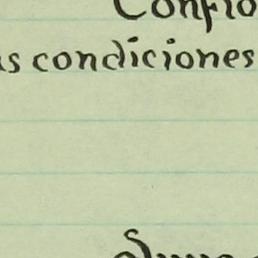 Confío
as condiciones